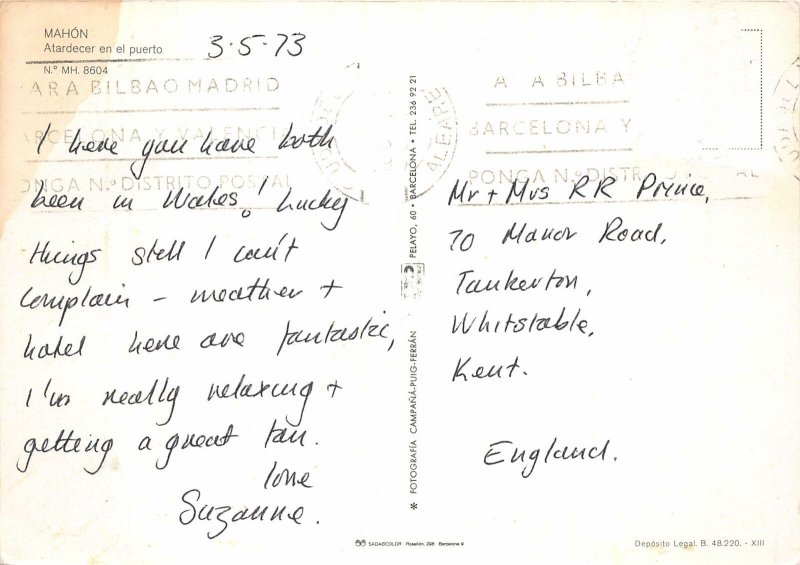 MAHÓN
Atardecer en el puerto
N.º MH. 8604
3.5.73
ARA BILBAO MADRID
ARCELONA Y VALENCI
ONGA N.º DISTRITO POSTAL
I hear you have both
been in Wales! Lucky
things still I can't
complain - weather +
hotel here are fantastic,
I'm really relaxing +
getting a great tan.
love
Suzanne.
✱ FOTOGRAFÍA CAMPAÑÁ-PUIG-FERRÁN
PELAYO, 60 • BARCELONA • TEL. 236 92 21
A A BILBA
BARCELONA Y
PONGA N.º DISTR O AL
ALEARE
Mr + Mrs RR Prince,
70 Manor Road,
Tankerton,
Whitstable,
Kent.
England.
SADAGCOLOR - Rosellón, 298 - Barcelona 9
Depósito Legal. B. 48.220. - XIII